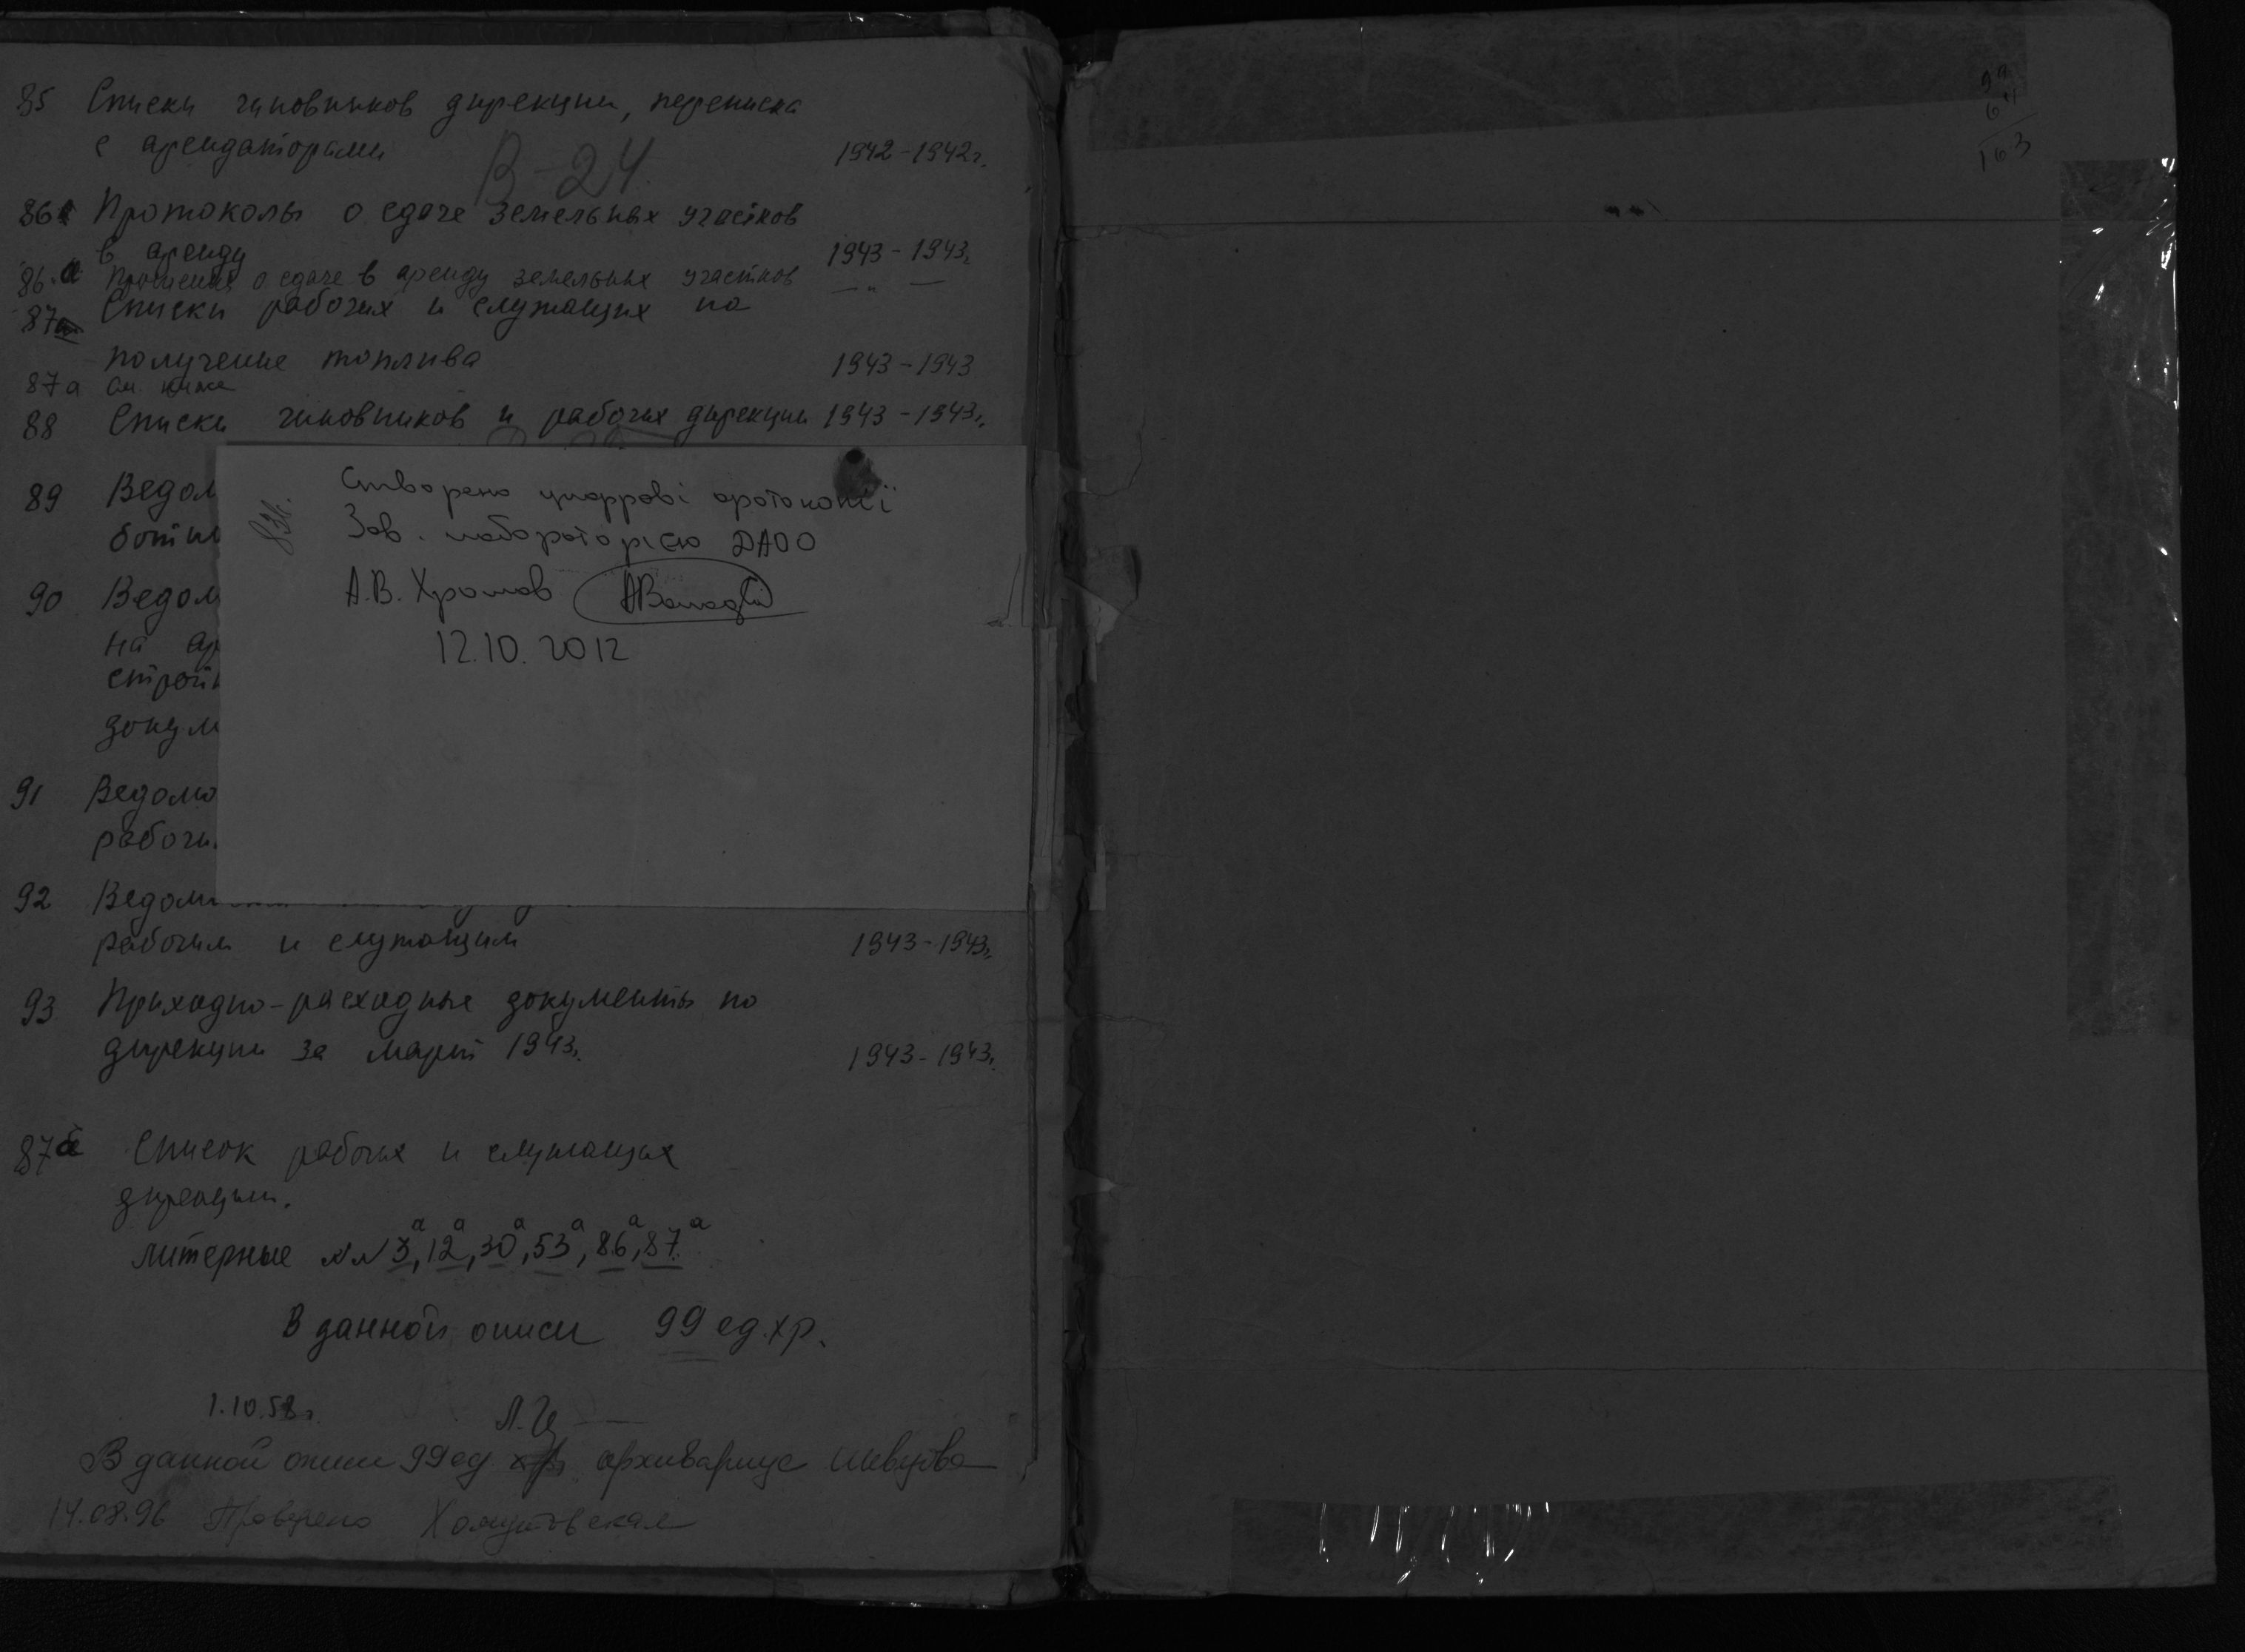 85 Списки чиновников дирекции, переписка
с арендаторами 1942-1942г.
В-24
86 Протоколы о сдаче земельных участков
в аренду 1943-1943г.
86.а Прошения о сдаче в аренду земельных участков — " —
87 Списки рабочих и служащих на
получение топлива 1943-1943
87а См. ниже
88 Списки чиновников и рабочих дирекции 1943-1943г.
89 Ведом
ботни
90 Ведом
на ар
строй
докум
91 Ведомо
рабочи
Створено цифрові фотокопії
Зав. лабораторією ДАОО
А.В. Хромов
12.10.2012
92 Ведом
рабочим и служащим 1943-1943г.
93 Приходно-расходные документы по
дирекции за март 1943г. 1943-1943г.
87а Список рабочих и служащих
дирекции.
Литерные NN 3а, 12а, 30а, 53а, 86а, 87а
В данной описи 99 ед.хр.
1.10.58г.
В данной описи 99 ед хр архивариус Шевцова
14.08.96 Проверено Хомутовская
99
64
163